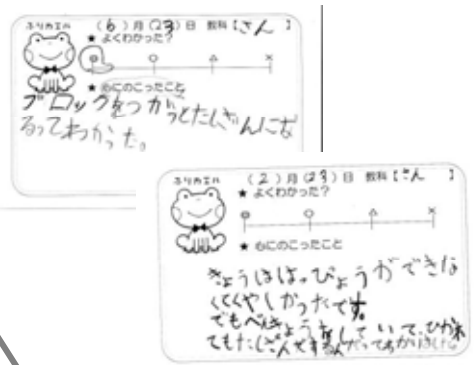 ふりカエル
(6)月(23)日 教科【さん】
★ よくわかった?
◎ ○ △ ×
★ 心にのこったこと
ブロックをつかうとたしざんにな
るってわかった。
ふりカエル
(2)月(23)日 教科【さん】
★ よくわかった?
◎ ○ △ ×
★ 心にのこったこと
きょうははっぴょうができな
くてくやしかったです。
でもべんきょうをしていて、ひかく
てもたしざんをするんだってわかりました